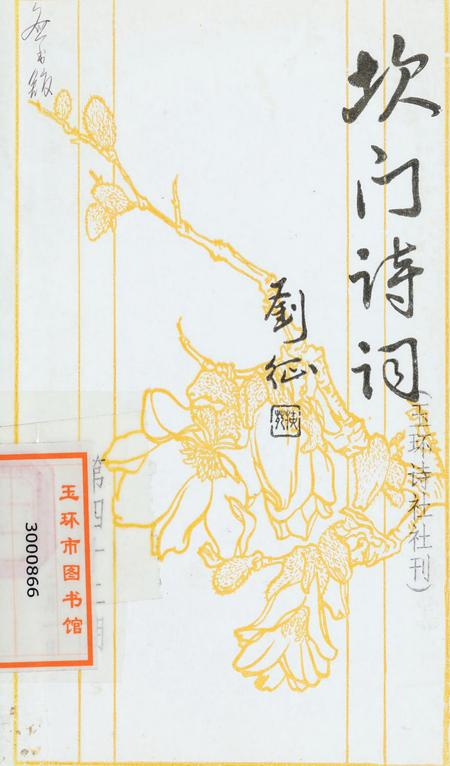 坎门诗词
(玉环诗社社刊)
劉征
第四十
期
玉环市图书馆
3000866